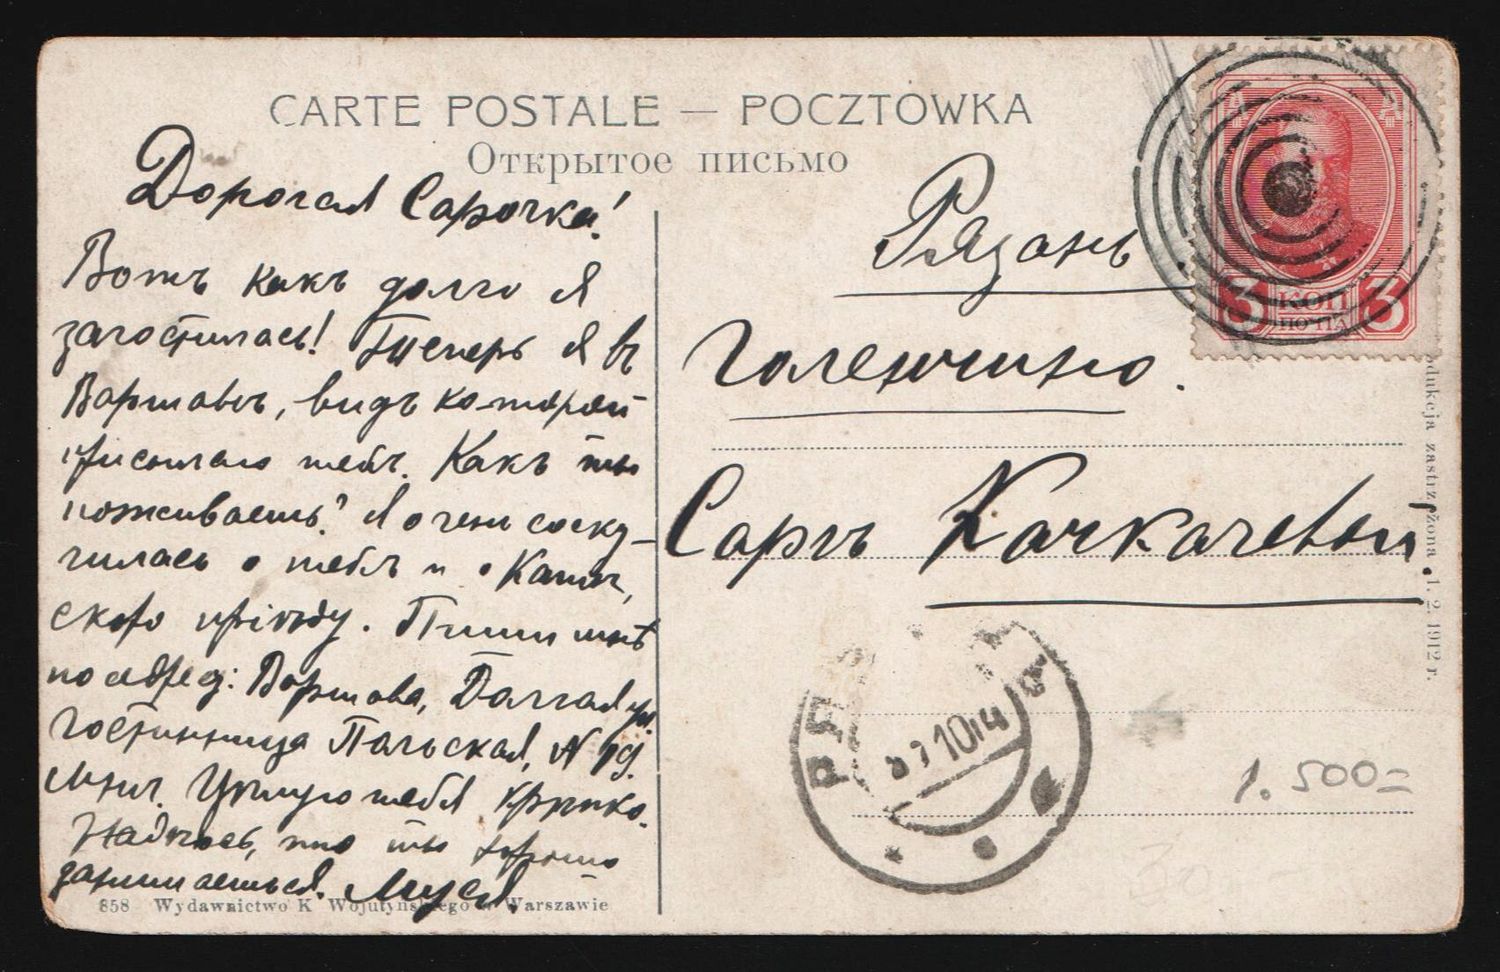 CARTE POSTALE — POCZTÓWKA
Открытое письмо
Дорогая Сарочка!
Вотъ какъ долго я
загостилась! Теперь я въ
Варшавѣ, видъ которой
присылаю тебѣ. Какъ ты
поживаешь? Я очень соску-
чилась о тебѣ и о Кат
скоро пріѣду. Пиши мнѣ
по адред: Варшава, Долгая ул.
гостинница Польская, N 19.
мнѣ. Цѣлую тебя крѣпко.
Надѣюсь, что ты хорошо
занимаешься. Муся.
858 Wydawnictwo K Wojutyńskiego w Warszawie
Рязань
Голенчино.
Сарѣ Хачкачевой
3 КОП 3
ПОЧТА
dukcja zastrzeżona 1. 2. 1912 r.
10 14
1.500=
30